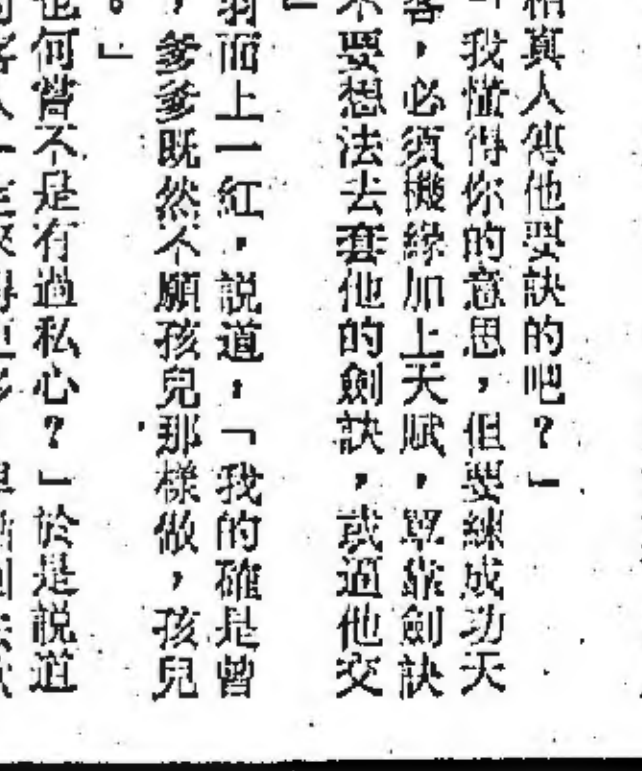 相真人傳他要訣的吧？」
「我懂得你的意思，但要練成功天
客，必須機緣加上天賦，單靠劍訣
不要想法去套他的劍訣，或逼他交
羽面上一紅，說道，「我的確是曾
，爹爹既然不願孩兒那樣做，孩兒
。」
也何嘗不是有過私心？」於是說道